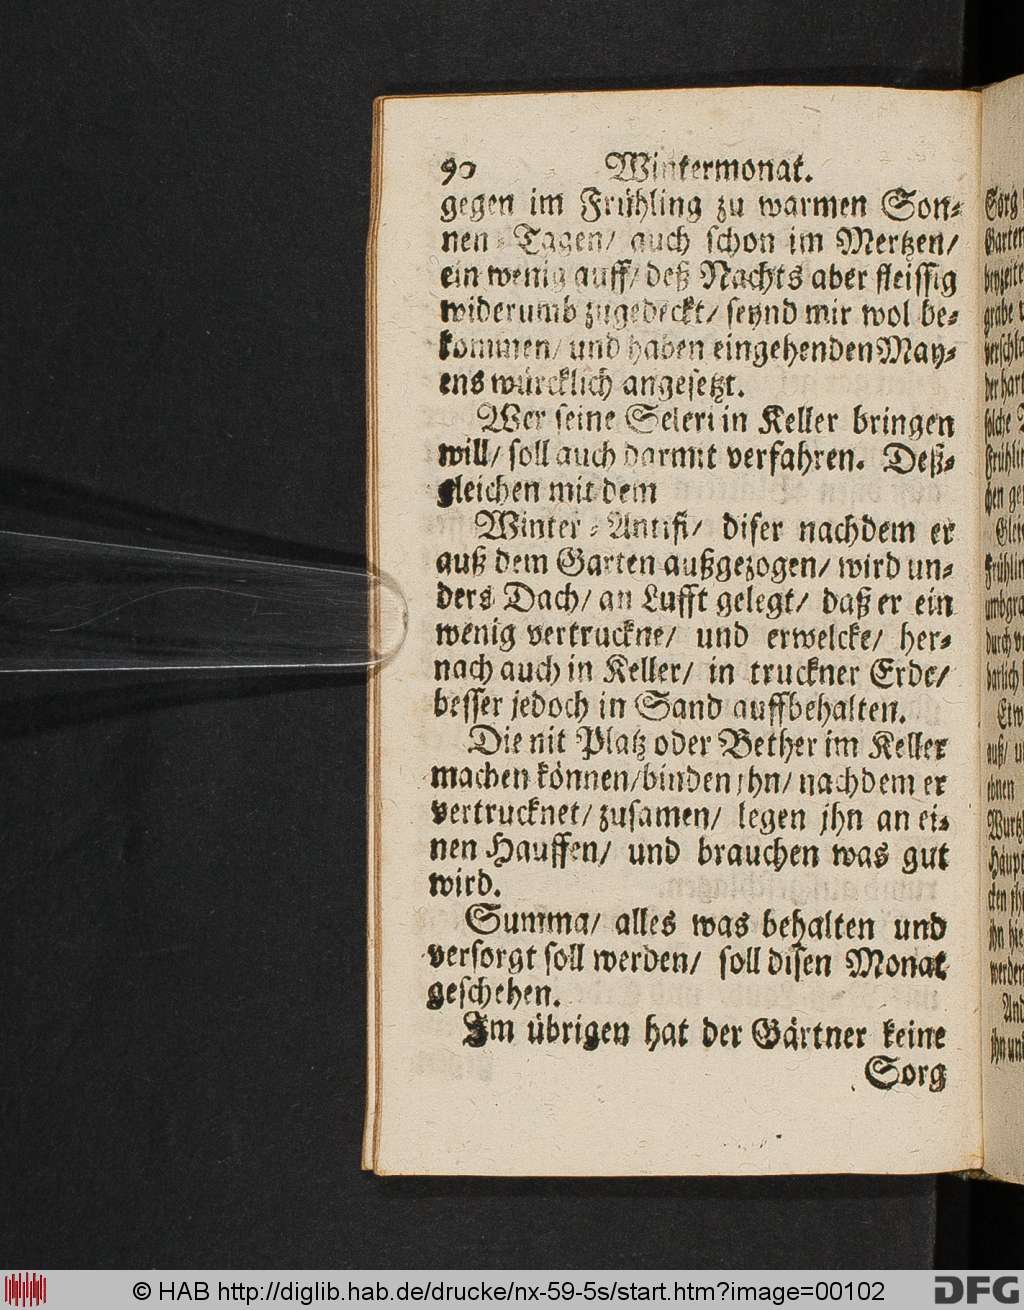 90 Wintermonat.
gegen im Frühling zu warmen Son-
nen-Tagen/ auch schon im Mertzen/
ein wenig auff/ deß Nachts aber fleissig
widerumb zugedeckt/ seynd mir wol be-
kommen/ und haben eingehenden May-
ens würcklich angesetzt.
Wer seine Seleri in Keller bringen
will/ soll auch darmit verfahren. Deß-
gleichen mit dem
Winter-Antifi/ diser nachdem er
auß dem Garten außgezogen/ wird un-
ders Dach/ an Lufft gelegt/ daß er ein
wenig vertruckne/ und erwelcke/ her-
nach auch in Keller/ in truckner Erde/
besser jedoch in Sand auffbehalten.
Die nit Platz oder Bether im Keller
machen können/binden jhn/ nachdem er
vertrucknet/ zusamen/ legen jhn an ei-
nen Hauffen/ und brauchen was gut
wird.
Summa/ alles was behalten und
versorgt soll werden/ soll disen Monat
geschehen.
Im übrigen hat der Gärtner keine
Sorg
© HAB http://diglib.hab.de/drucke/nx-59-5s/start.htm?image=00102
DFG